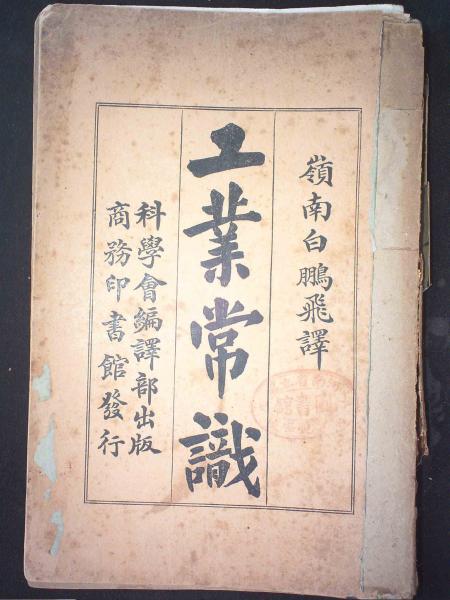 嶺南白鵬飛譯
工業常識
科學會編譯部出版
商務印書館發行